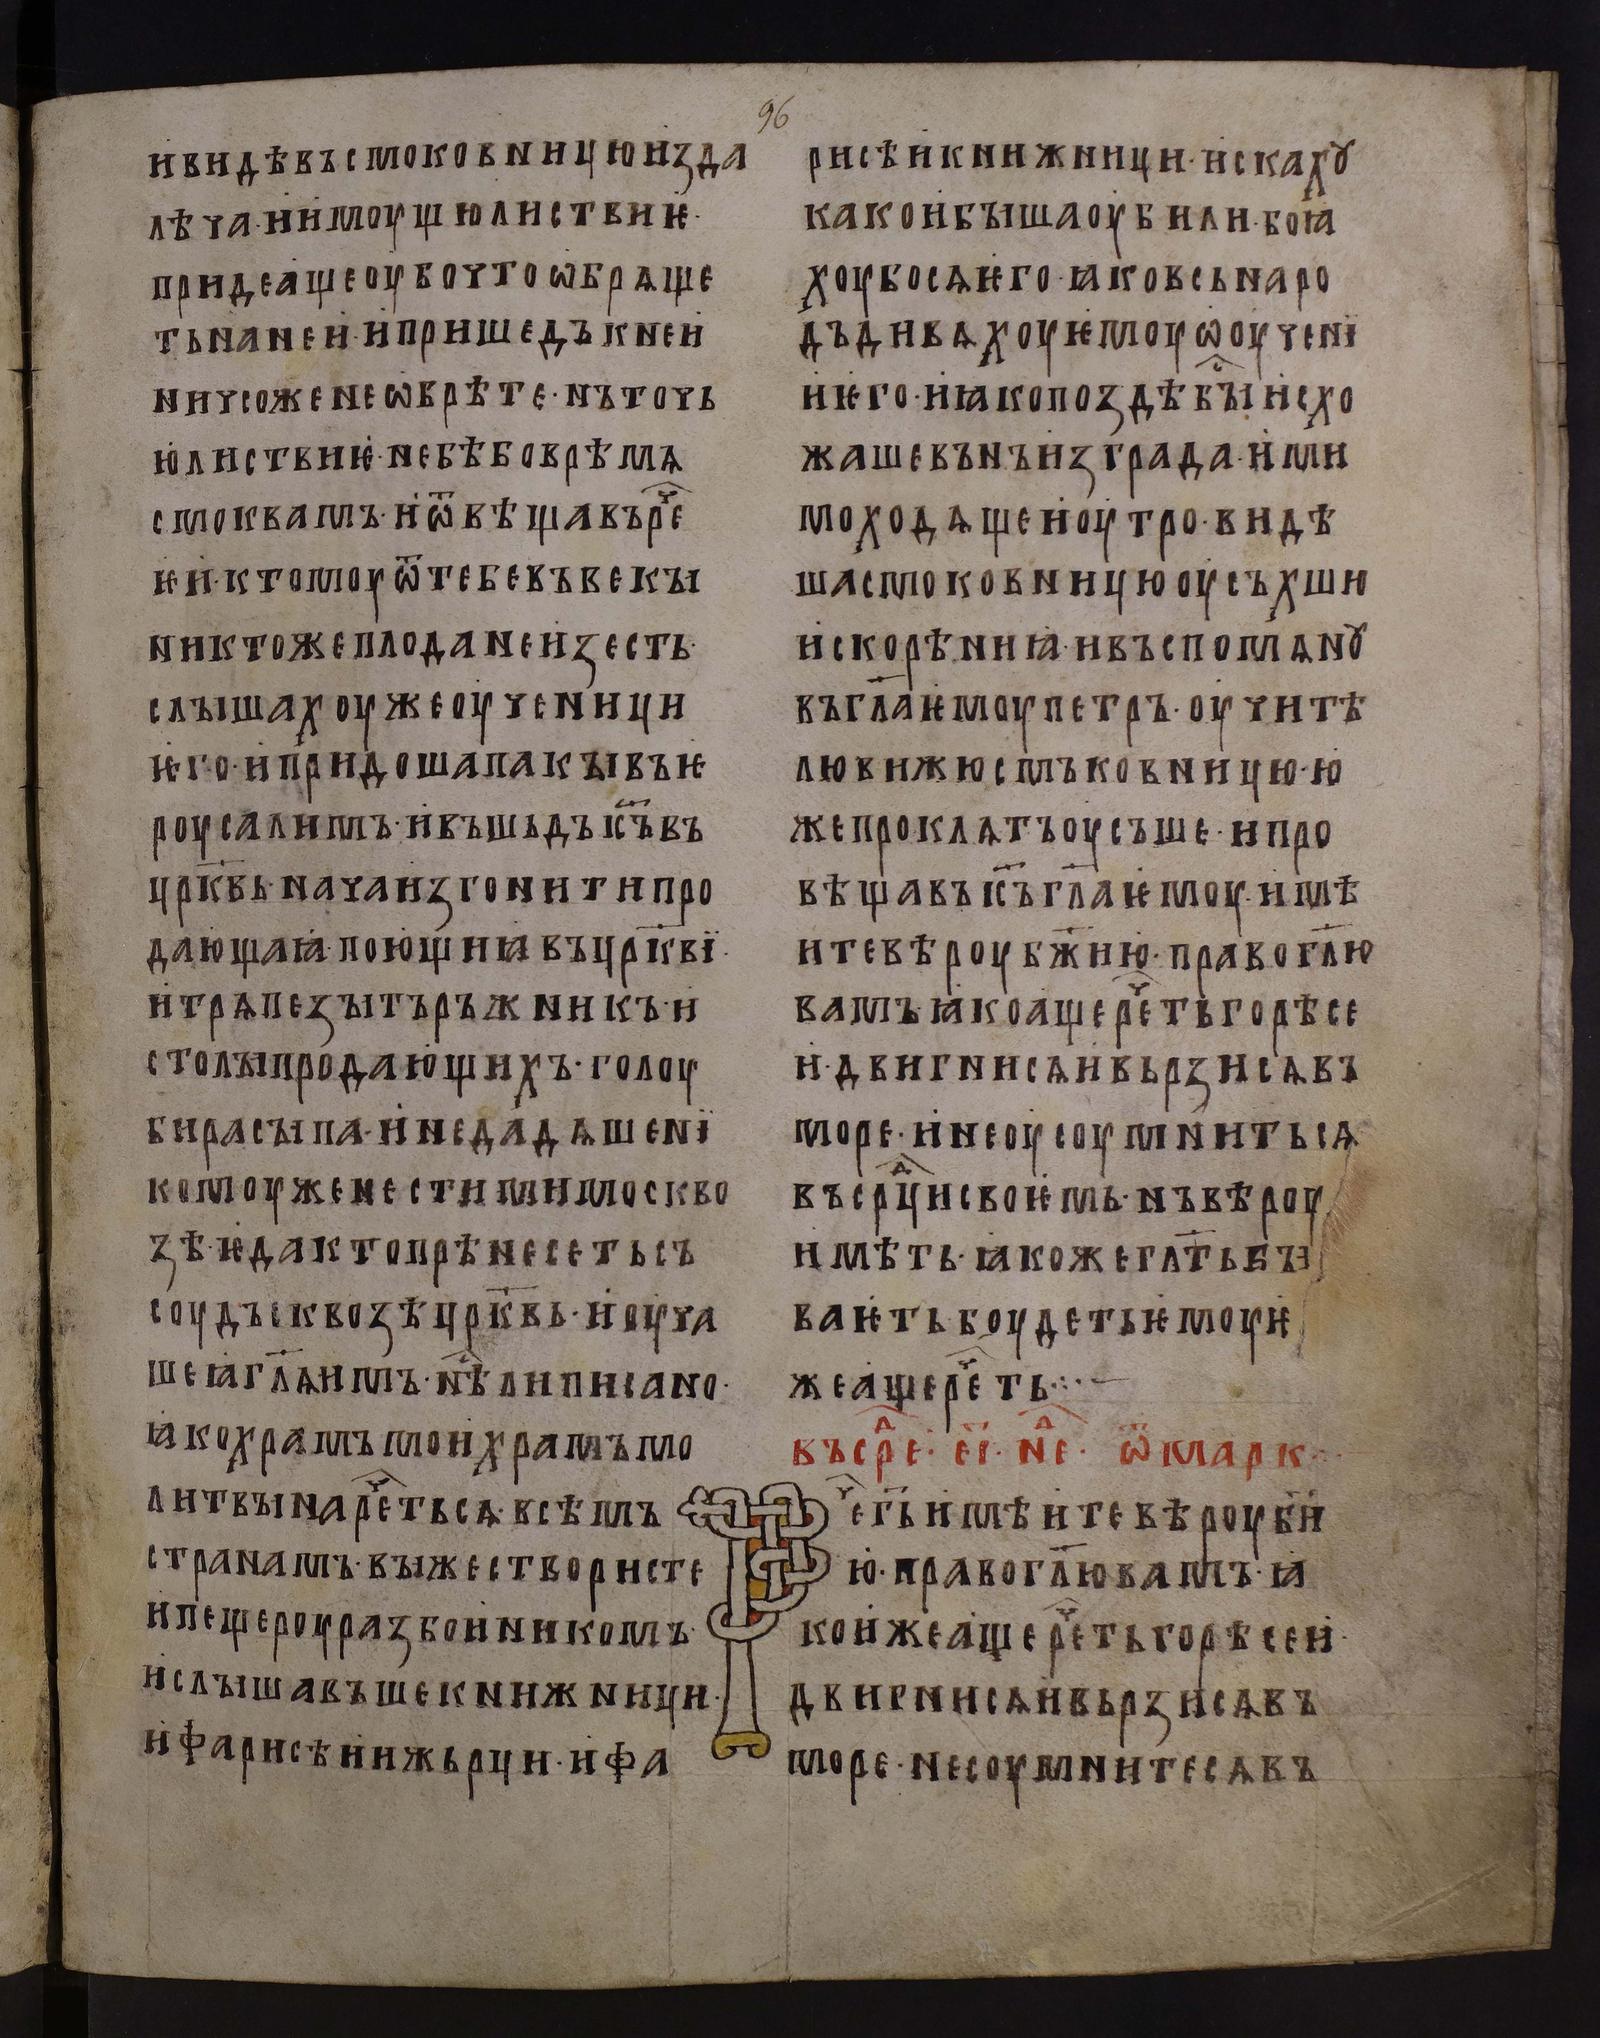 96
и видѣвъ смоковницю изда
лѣча имоущю листвиѥ·
приде аще оубо что ѡбрѧще
ть на неи· и пришедъ к неи
ничсоже не ѡбрѣте· нъ точь
ю листвиѥ· не бѣ бо врѣмѧ
смоквамъ· и ѿвѣщавъ рⷱе
ѥи· к томоу ѿ тебе въ векы
никтоже плода не изесть·
слышахоу же оученици
ѥго· и придоша пакы въ ѥ
роусалимъ· и въшьдъ і҃съ въ
цр҃квь· нача изгонити про
дающаꙗ· поющиꙗ въ цр҃кві·
и трѧпезы търъжникъ· и
столы продающихъ· голоу
би расыпа· и не дадѧше ні
комоуже не сти мимо скво
зѣ· ѥда кто прѣнесеть съ
соудъ сквозѣ цр҃квь· и оуча
ше ꙗ гл҃ѧ имъ· нⷭѣ ли писано·
ꙗко храмъ мои храмъ мо
литвы нарⷱетьсѧ· всѣмъ
странамъ· вы же створисте
и пещероу разбоиникомъ·
и слышавъше книжници·
и фарисѣи и жьрци· и фа
рисѣи книжници· искахꙋ
како и быша оубили· боꙗ
хоу бо сѧ ѥго· ꙗко всь наро
дъ дивѧхоу ѥмоу ѡ оучені
и ѥго· и ꙗко поздѣ бⷭы исхо
жаше вънъ из града· и ми
моходѧще и оутро· видѣ
ша смоковницю оусъхшю
ис корѣниꙗ· и въспомѧнꙋ
въ гл҃а ѥмоу петръ· оучитѣ
лю вижю смъковницю· ю
же проклѧтъ оусъше· и про
вѣщавъ і҃съ гл҃а ѥмоу· имѣ
ите вѣроу бж҃ию· право гл҃ю
вамъ· ꙗко аще рⷱеть горѣ се
и· двигнисѧ и вьрзисѧ въ
море· и не оусоумнитьсѧ
въ срⷣци своѥмь· нъ вѣроу
имѣть· ꙗкоже гл҃ть бы
ваѥть боудеть ѥмоу ѥ
же аще рⷱеть·
въ срⷣе· е҃і· нⷣе· ѿ марк·
Рⷱе г҃ь имѣите вѣроу б҃и
ю· право гл҃ю вамъ· ꙗ
ко иже аще рⷱеть горѣ сеи·
двигнисѧ и вьрзисѧ въ
море· не соумнитесѧ въ